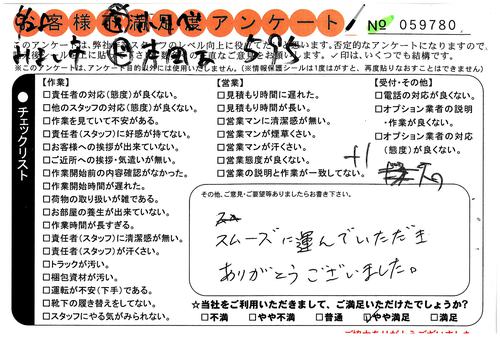 お客様満足度アンケート! № 059780
このアンケートは、弊社
※このアンケートは、アンケート目的以外には使用いたしません。(※情報保護シールは1度はがすと、再度貼りなおすことはできません。)
チェックリスト
【作業】
□責任者の対応(態度)が良くない。
□他のスタッフの対応(態度)が良くない。
□作業を見ていて不安がある。
□責任者(スタッフ)に好感が持てない。
□お客様への挨拶が出来ていない。
□ご近所への挨拶・気遣いが無い。
□作業開始前の内容確認がなかった。
□作業開始時間が遅れた。
□荷物の取り扱いが雑である。
□お部屋の養生が出来ていない。
□作業時間が長すぎる。
□責任者(スタッフ)に清潔感が無い。
□責任者(スタッフ)が汗くさい。
□トラックが汚い。
□梱包資材が汚い。
□運転が不安(下手)である。
□靴下の履き替えをしてない。
□スタッフにやる気がみられない。
【営業】
□見積もり時間に遅れた。
□見積もり時間が長い。
□営業マンに清潔感が無い。
□営業マンが煙草くさい。
□営業マンが汗くさい。
□営業態度が良くない。
□営業の説明と作業が一致してない。
【受付・その他】
□電話の対応が良くない。
□オプション業者の説明
・作業が良くない。
□オプション業者の対応
(態度)が良くない。
その他、ご意見・ご要望等ありましたらお書き下さい。
スムーズに運んでいただき
ありがとうございました。
☆当社をご利用いただきまして、ご満足いただけたでしょうか?
□不満 □やや不満 □普通 □やや満足 □満足